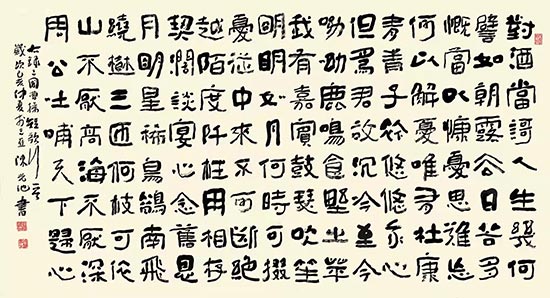 對酒當謌人生幾何
譬如朝露去日苦多
慨當以慷憂思難忘
何以解憂唯有杜康
青青子衿悠悠我心
但為君故沉吟至今
呦呦鹿鳴食野之苹
我有嘉賓鼓瑟吹笙
明明如月何時可掇
憂從中來不可斷絕
越陌度阡枉用相存
契闊談宴心念舊恩
月明星稀烏鵲南飛
繞樹三匝何枝可依
山不厭高海不厭深
周公吐哺天下歸心
右錄三國曹操短歌行一首
歲次仲夏於三亞陳書